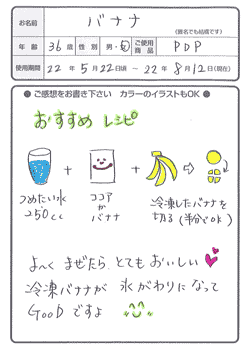 お名前 バナナ (匿名でも結構です)
年齢 36歳 性別 男・女 ご使用商品 PDP
使用期間 22年5月22日頃 ～ 22年8月12日(現在)
● ご感想をお書き下さい カラーのイラストもOK ●
おすすめ レシピ
+ + ⇒
つめたい水 250cc
ココア か バナナ
冷凍したバナナを 切る (半分でOK)
よ〜く まぜたら、とても おいしい
冷凍バナナが 氷がわりに なって
GooD ですよ